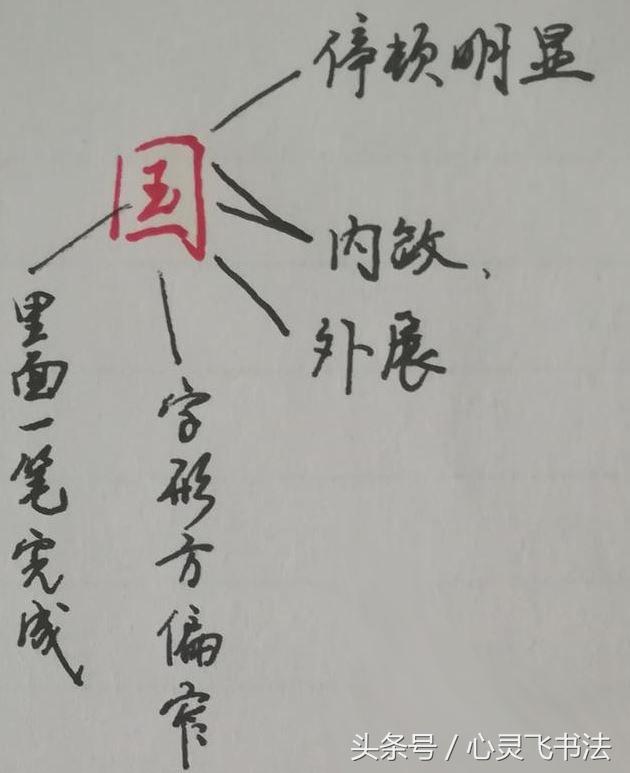 停顿明显
国
内敛、
外展
里面一笔完成
字形方偏窄
头条号 / 心灵飞书法